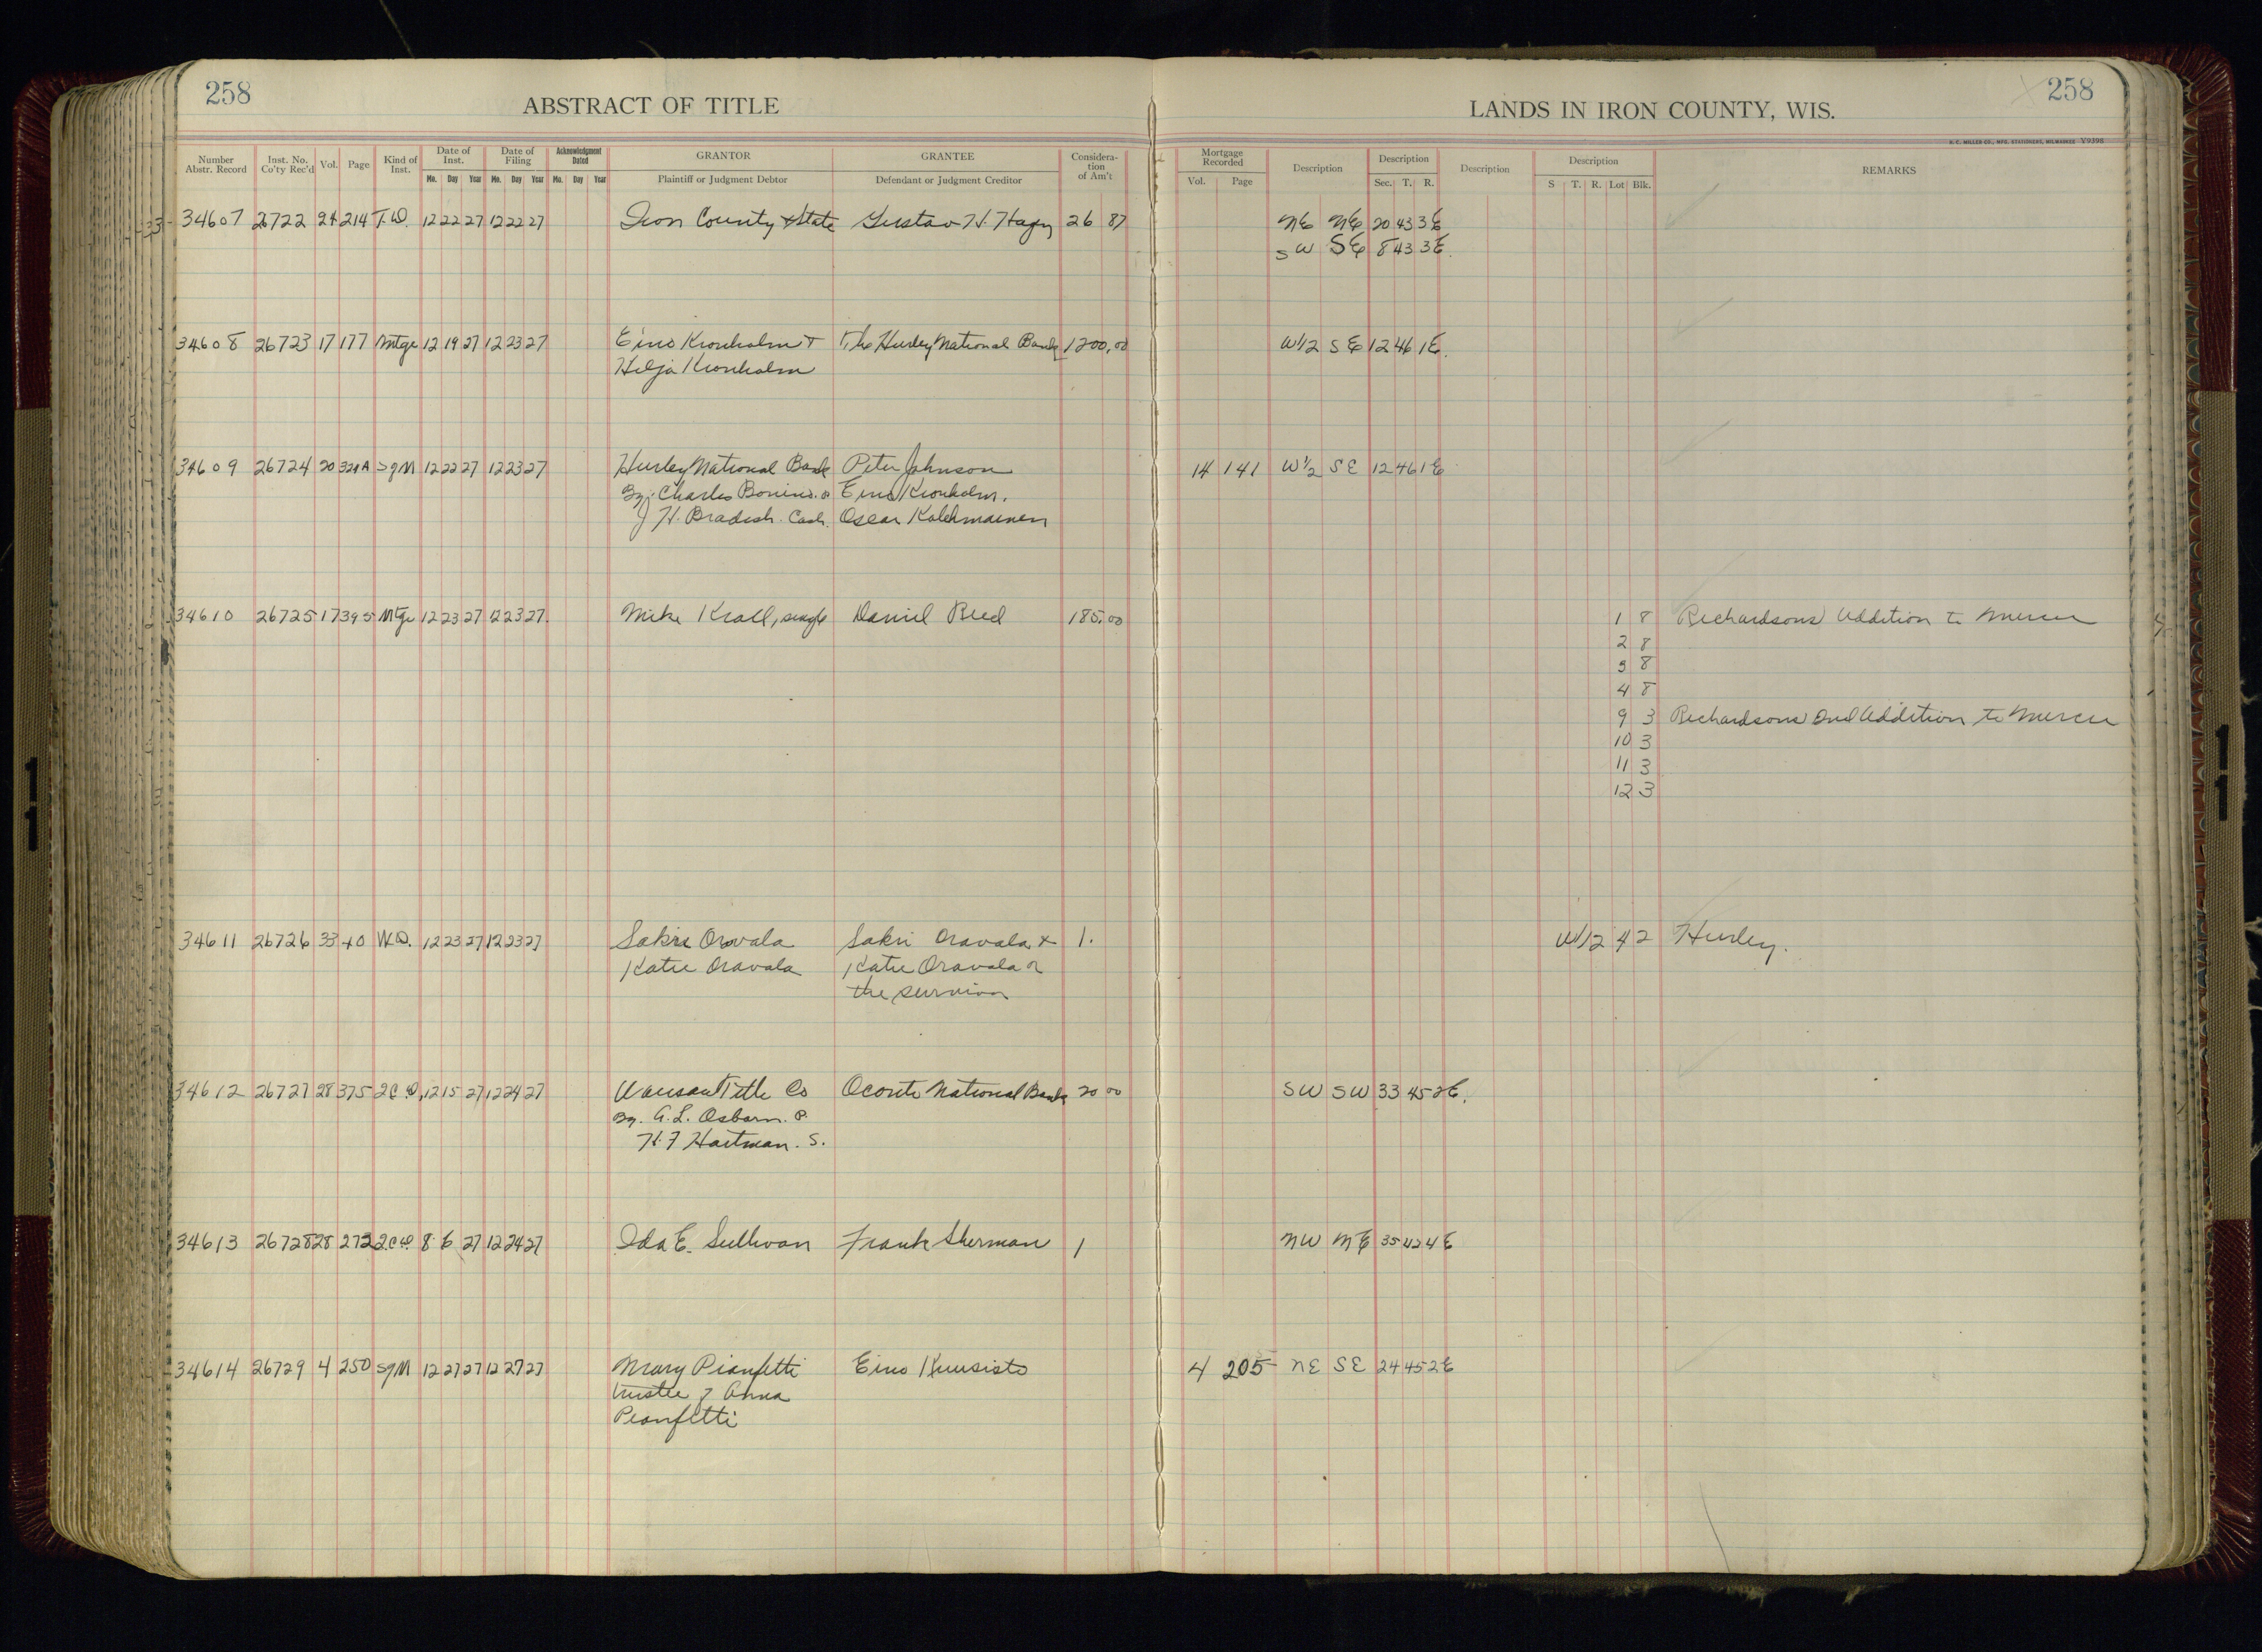 258
ABSTRACT OF TITLE
LANDS IN IRON COUNTY, WIS.
258
H. C. MILLER CO., MFG. STATIONERS, MILWAUKEE V9398
Number Abstr. Record Inst. No. Co'ty Rec'd Vol. Page Kind of Inst. Date of Inst. Mo. Day Year Date of Filing Mo. Day Year Acknowledgment Dated Mo. Day Year GRANTOR Plaintiff or Judgment Debtor GRANTEE Defendant or Judgment Creditor Considera-tion of Am't Mortgage Recorded Vol. Page Description Description Sec. T. R. Description Description S T. R. Lot Blk. REMARKS
34607 26722 24 214 T.D. 12 22 27 12 22 27 Iron County & State Gustav H. 26 87 NE NE 20 43 3E
SW SE 8 43 3E.
34608 26723 17 177 Mtge 12 19 27 12 23 27 Eino Kronholm + The Hurley National Bank 1200.00 W1/2 SE 12 46 1E.
Hilja Kronholm
34609 26724 20 321A SgM 12 22 27 12 23 27 Hurley National Bank Peter Johnson 14 141 W1/2 SE 12 46 1E
By. Charles Bonino. Eino Kronholm.
J H. Bradish. Cash. Oscar Kolehmainen
34610 26725 17 395 Mtge 12 23 27 12 23 27. Mike Krall, single Daniel Reed 185.00 1 8 Richardsons Addition to Mercer
2 8
3 8
4 8
9 3 Richardsons 2nd Addition to Mercer
10 3
11 3
12 3
34611 26726 33 40 W.D. 12 23 27 12 23 27 Sakri Oravala Sakri Oravala + 1. W1/2 4 2 Hurley.
Katie Oravala Katie Oravala or
the survivor
34612 26727 28 375 2CD, 12 15 27 12 24 27 Wausau Title Co Oconto National Bank 20 00 SW SW 33 45 2E.
By. A. L. Osborn. P.
H. F Hartman. S.
34613 26728 28 272 2.C.D. 8 6 27 12 24 27 Ida E. Sullivan Frank Sherman 1 NW NE 35 42 4E
34614 26729 4 250 SgM 12 27 27 12 27 27 Mary Pianfetti Eino Kuusisto 4 205 NE SE 24 45 2E
trustee of Anna
Pianfetti